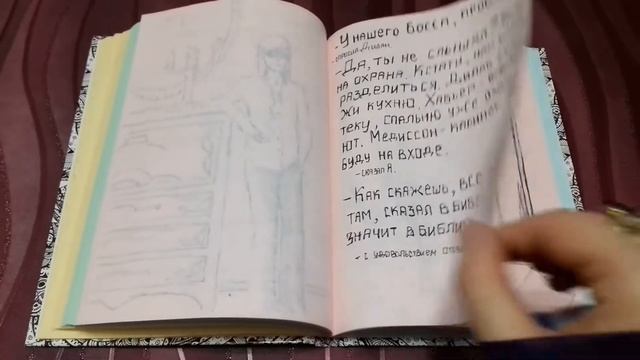 - У нашего босса,
- спросил Дилан
- Да, ты не слышал
на охрана. Кстати,
разделиться. Дилан
жи кухню, Хабьер
теку, спальню уже
ют. Медиссон-
буду на входе.
- сказал я.
- Как скажешь,
там, сказал в
значит в библи
- с удовольствием